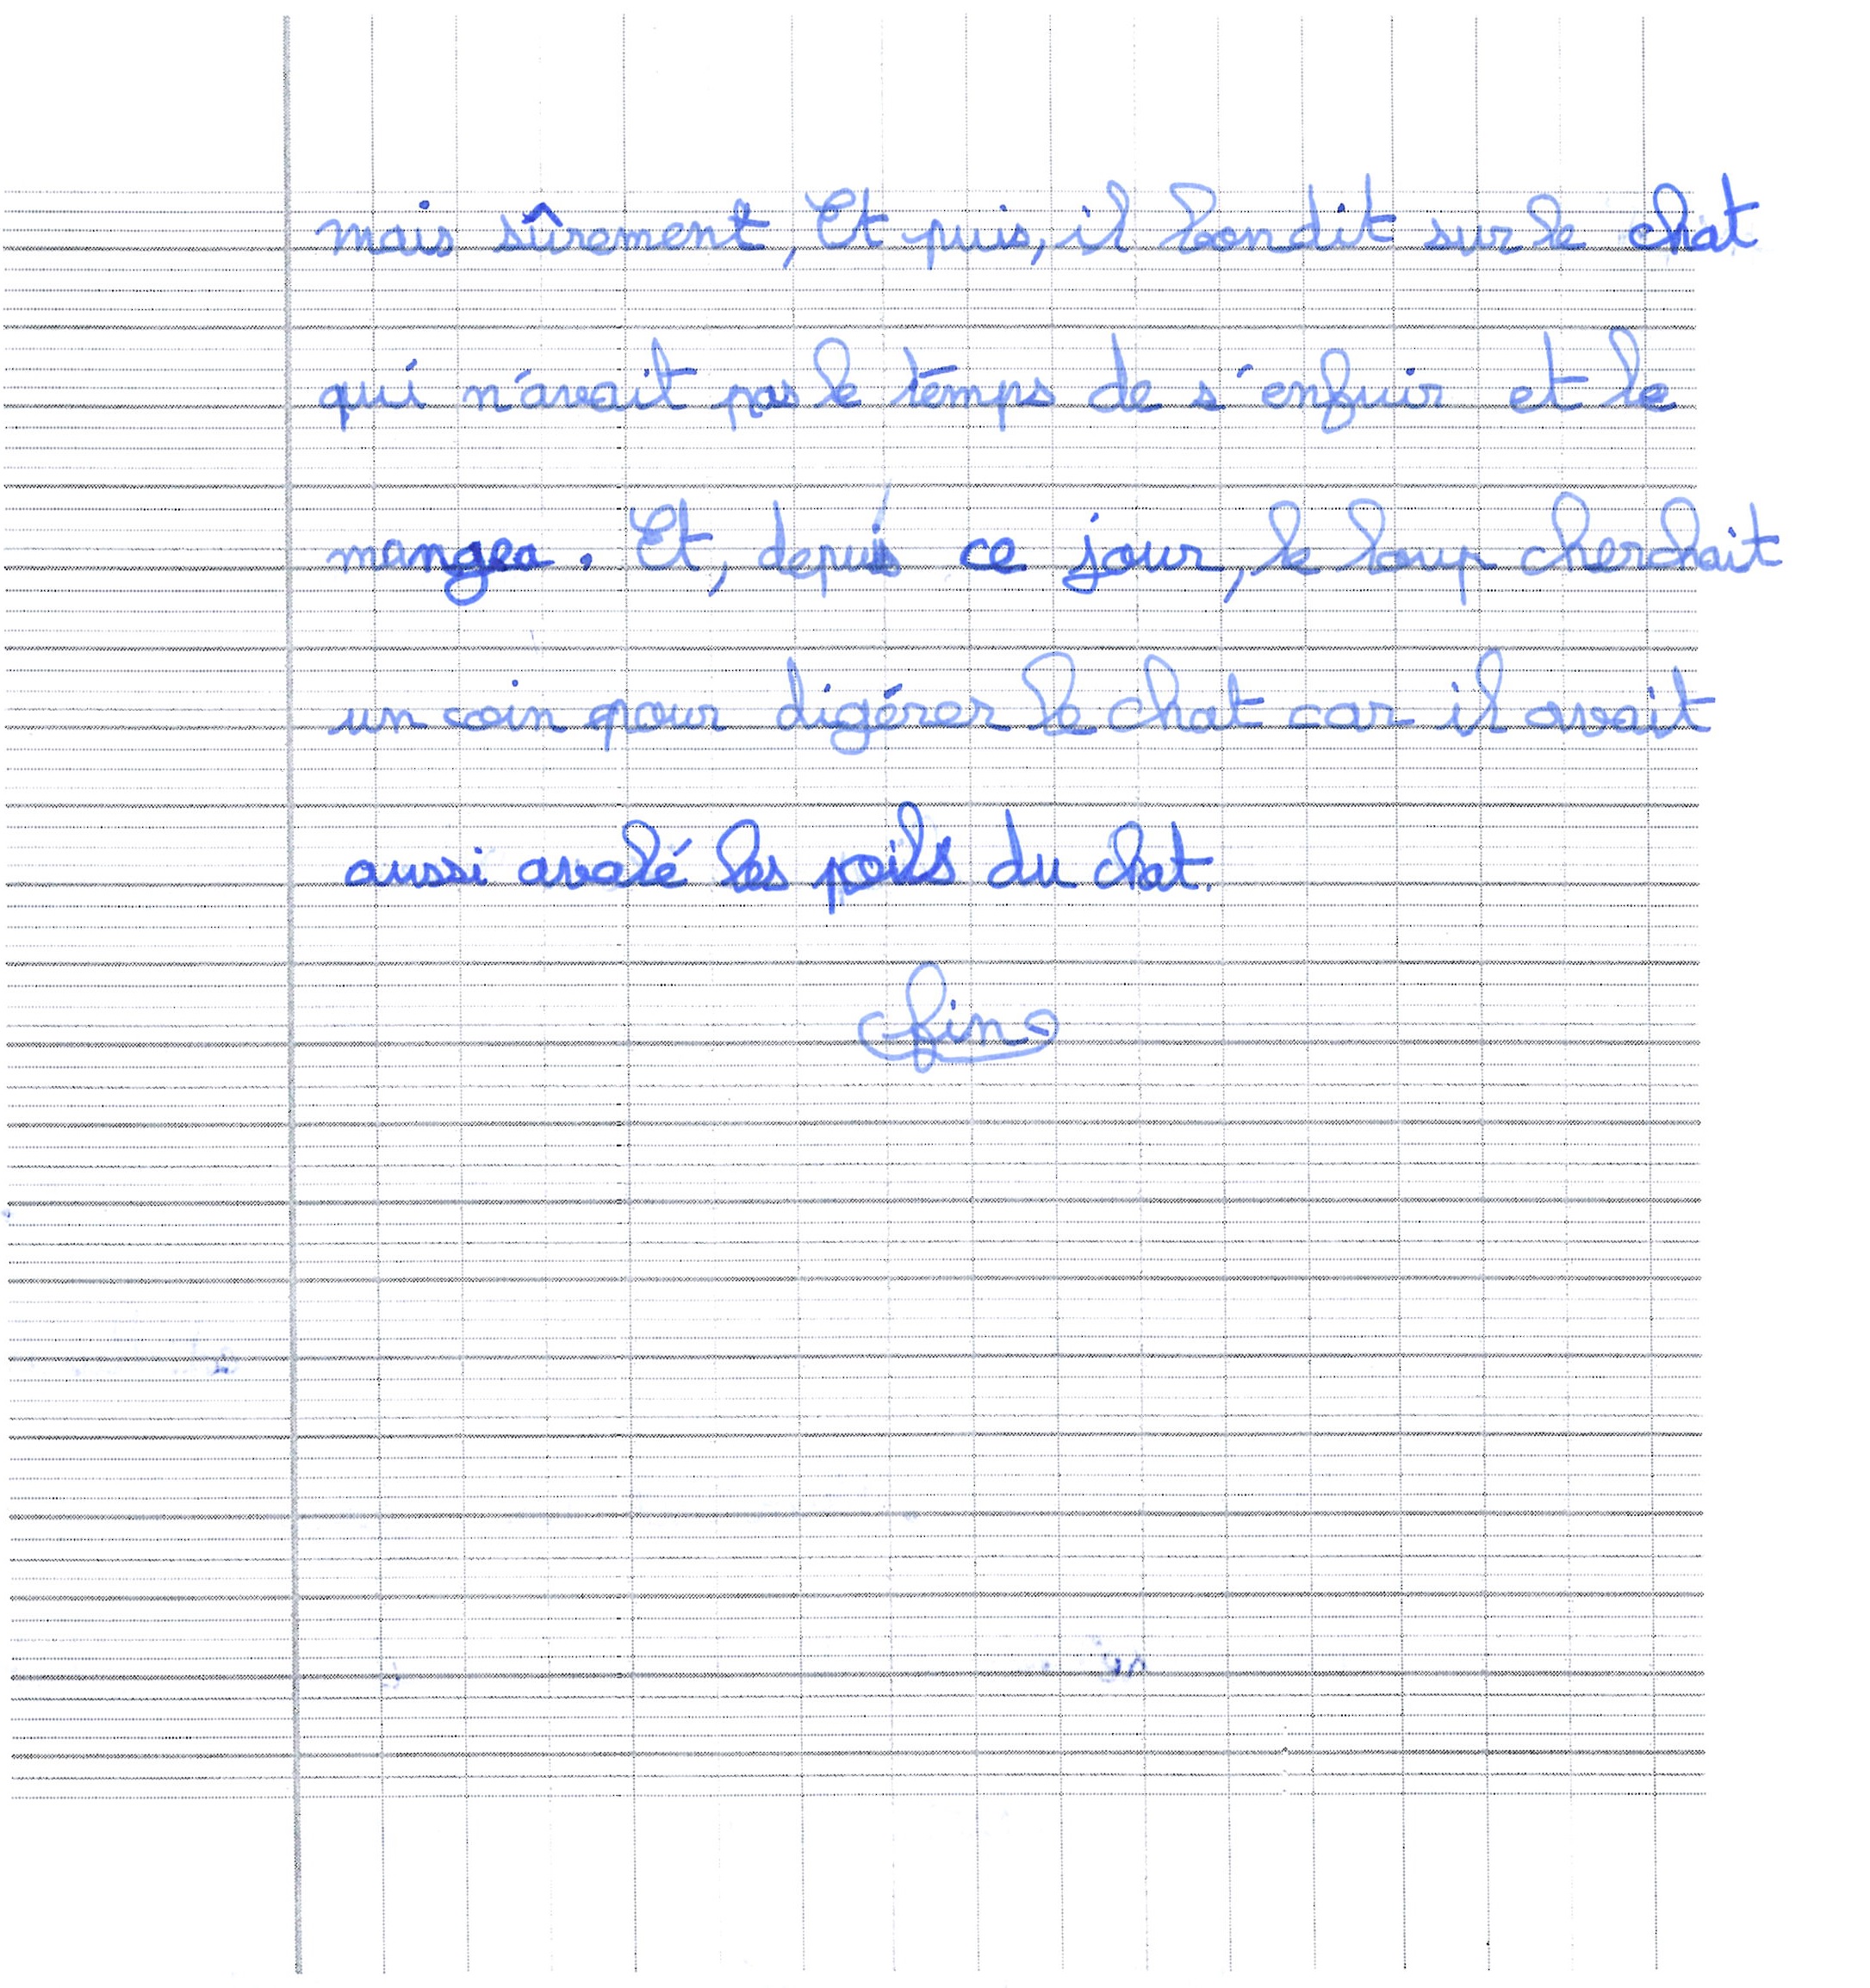 mais sûrement, Et puis, il bondit sur le chat
qui n'avait pas le temps de s'enfuir et le
mangea. Et, depuis ce jour, le loup cherchait
un coin pour digérer le chat car il avait
aussi avalé les poils du chat.
fin